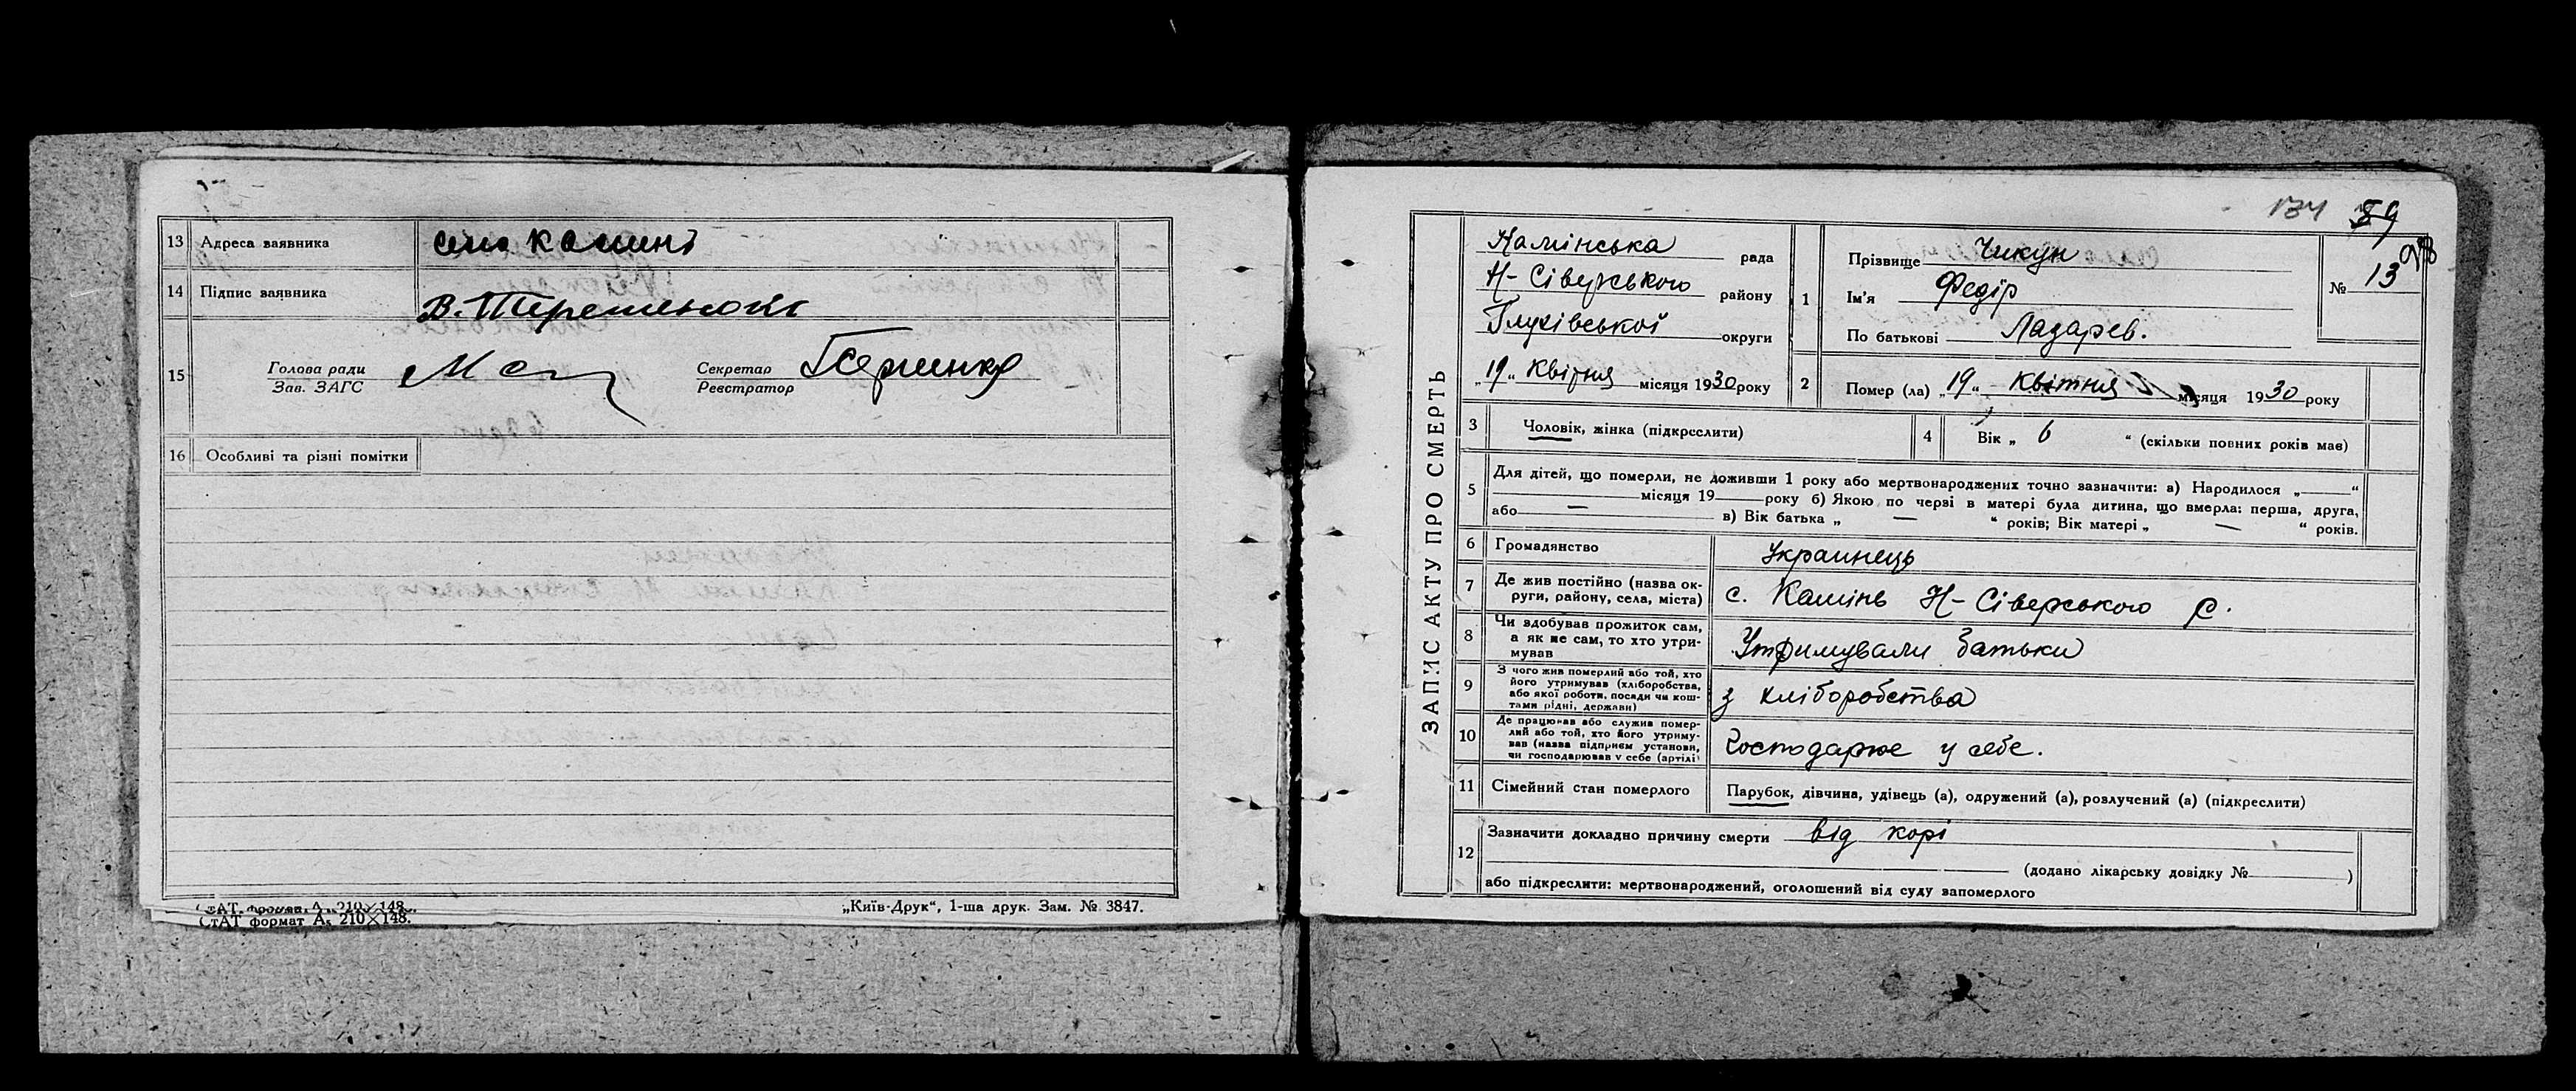 13 Адреса заявника село Камінь
14 Підпис заявника В. Терешенок
15 Голова ради
Зав. ЗАГС
Секретар
Реєстратор
16 Особливі та різні помітки
СтАТ формат А₅ 210×148.
СтАТ формат А₅ 210×148.
„Київ-Друк“, 1-ша друк. Зам. № 3847.
134 89
ЗАПИС АКТУ ПРО СМЕРТЬ
Камінська рада
Н-Сіверського району
Глухівської округи
„19“ Квітня місяця 1930 року
1 Прізвище Чикун
Ім'я Федір
По батькові Лазарев.
№ 13
2 Помер (ла) „19“ Квітня місяця 1930 року
3 Чоловік, жінка (підкреслити)
4 Вік „ 6 “ (скільки повних років має)
5 Для дітей, що померли, не доживши 1 року або мертвонароджених точно зазначити: а) Народилося „ “
місяця 19 року б) Якою по черзі в матері була дитина, що вмерла: перша, друга,
або — в) Вік батька „ — “ років; Вік матері „ — “ років.
6 Громадянство Украинець
7 Де жив постійно (назва ок-
руги, району, села, міста) с. Камінь Н-Сіверського р.
8 Чи здобував прожиток сам,
а як не сам, то хто утри-
мував Утримували батьки
9 З чого жив померлий або той, хто
його утримував (хліборобства,
або якої роботи, посади чи кош-
тами рідні, держави) з хліборобства
10 Де працював або служив помер-
лий або той, хто його утриму-
вав (назва підприєм установи,
чи господарював у себе (артілі) Господарює у себе.
11 Сімейний стан померлого Парубок, дівчина, удівець (а), одружений (а), розлучений (а) (підкреслити)
12 Зазначити докладно причину смерти від корі
(додано лікарську довідку № )
або підкреслити: мертвонароджений, оголошений від суду запомерлого